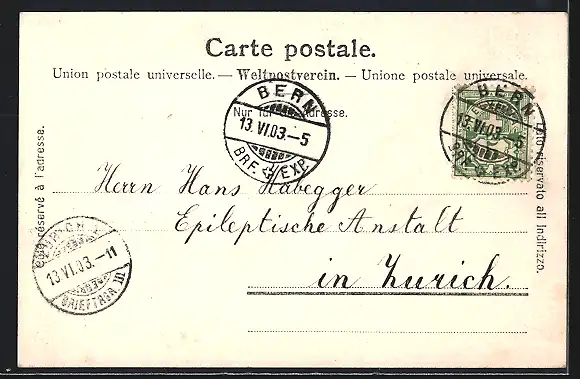 Carte postale.
Union postale universelle. — Weltpostverein. — Unione postale universale.
BERN
13.VI.03.–5
BRF. EXP.
BERN
13.VI.03.–5
BRF. EXP.
Nur für die Adresse.
Côté réservé à l'adresse.
Lato riservato all' indirizzo.
Herrn Hans Habegger
Epileptische Anstalt
in Zurich.
13.VI.03.–11
BRIEFTRGR. III